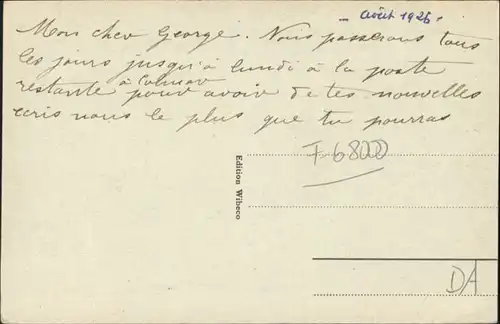 Août 1926
Mon cher George. Nous passerons tous
les jours jusqu'à lundi à la poste
restante à Colmar pour avoir de tes nouvelles
ecris nous le plus que tu pourras
F 6800
Edition Wibeco
DA